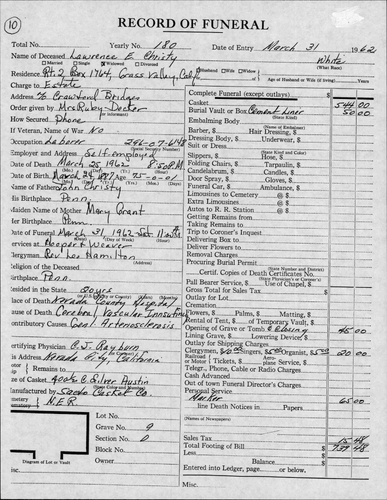 10
RECORD OF FUNERAL
Total No. Yearly No. 180 Date of Entry March 31 1962
Name of Deceased Lawrence E. Christy White
Married Single Widowed Divorced (What Race)
Residence Rt. 2 Box 1764, Grass Valley, Calif Husband Wife Widow
Charge to Estate Age of Husband or Wife (if living) Yrs.
% Crawford Bridges
Order given by Mrs Ruby Decker
How Secured Phone
If Veteran, Name of War No
Occupation Laborer
(Social Security Number)
Employer and Address Self employed
Date of Death March 25, 1962
Date of Birth
(Yrs.) (Mos.) (Days)
Name of Father John Christy
His Birthplace Penn.
Maiden Name of Mother Mary Grant
Birthplace Penn.
Date of Funeral March 31, 1962 Sat.
Services at Hooper & Weaver
Clergyman Rev Les Hamilton
Religion of the Deceased
Birthplace Penn.
Resided in the State 20yrs
Place of Death Nevada County Hospital
Cause of Death Cerebral Vascular Insufficiency
Contributory Causes Genl Arteriosclerosis
Certifying Physician C. J. Rayburn
His Address Nevada City, California
Remains to
Size of Casket Silver Austin
Manufactured by Casket Co.
Cemetery N.E.R.
Lot No.
Grave No. 9
Section No. D
Block No.
Owner
Diagram of Lot or Vault
Complete Funeral (except outlays) $
Casket 544 00
Burial Vault or Box Cement Liner 50 00
(State Kind)
Embalming Body
(Name of Embalmer)
Barber, $ Hair Dressing, $
Dressing Body, $ Underwear, $
Suit or Dress
(State Kind and Color)
Slippers, $ Hose, $
Folding Chairs, $ Tarpaulin, $
Candelabrum, $ Candles, $
Door Spray, $ Gloves, $
Funeral Car, $ Ambulance, $
Limousines to Cemetery @ $
Extra Limousines @ $
Autos to R. R. Station @ $
Getting Remains from
Taking Remains to
Trip to Coroner's Inquest
Delivering Box to
Deliver Flowers to
Removal Charges
Procuring Burial Permit
(State Number and District)
Certif. Copies of Death Certificates No.
Pall Bearer Service, $ Use of Chapel, $
Gross Total for Sales Tax $
Outlay for Lot
Cremation
Flowers, $ Palms, $ Matting, $
Rental of Tent, $ of Temporary Vault, $
Opening of Grave or Tomb & Closing 45 00
Lining Grave, $ Lowering Device, $
Outlay for Shipping Charges
Clergymen, $ Singers, $ Organist, $ 5.00 20 00
Telegr., Phone, Cable or Radio Charges
Cash Advanced
Out of town Funeral Director's Charges
Personal Service
Marker 65 00
line Death Notices in Papers
(Names of Newspapers)
Sales Tax 15 48
Total Footing of Bill $ 739 48
Less
Balance $
Entered into Ledger, page or below.
Misc.